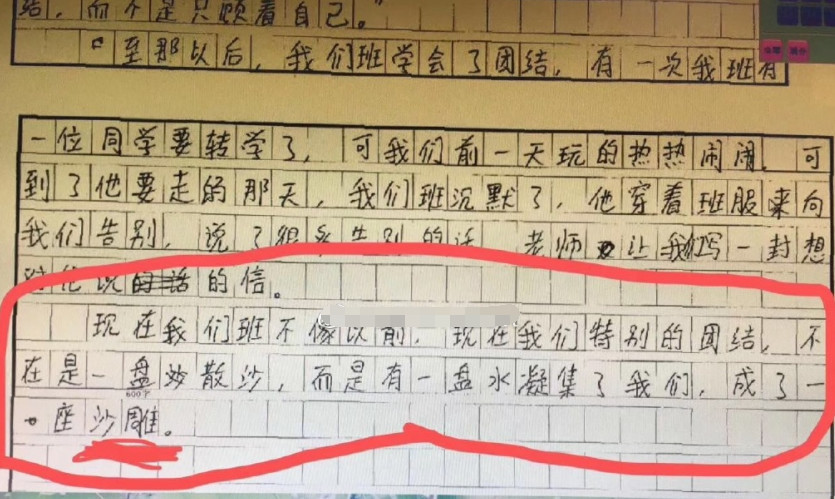 结，而不是只顾着自己。”
至那以后，我们班学会了团结，有一次我班有
一位同学要转学了，可我们前一天玩的热热闹闹，可
到了他要走的那天，我们班沉默了，他穿着班服来向
我们告别，说了很多告别的话，老师让我们写一封想
对他说的话的信。
现在我们班不像以前，现在我们特别的团结，不
在是一盘散沙，而是有一盘水凝集了我们，成了一
600字
座沙雕。